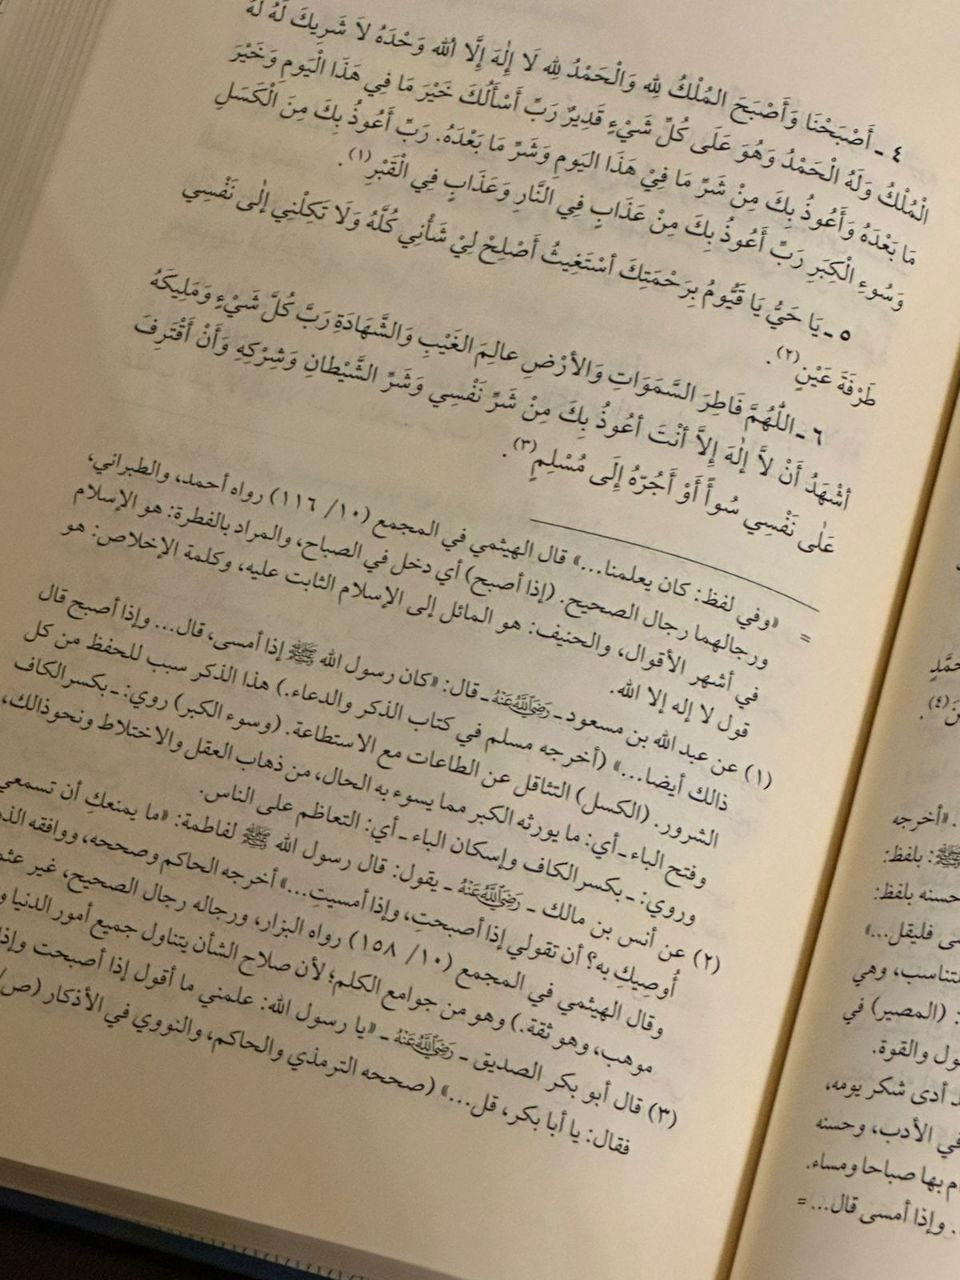 ٤ ـ أَصْبَحْنَا وَأَصْبَحَ المُلْكُ لِلهِ وَالْحَمْدُ لِلهِ لَا إِلٰهَ إِلَّا اللهُ وَحْدَهُ لاَ شَرِيكَ لَهُ لَهُ
الْمُلْكُ وَلَهُ الْحَمْدُ وَهُوَ عَلَى كُلِّ شَيْءٍ قَدِيرٌ رَبِّ أَسْأَلُكَ خَيْرَ مَا فِي هَذَا الْيَومِ وَخَيْرَ
مَا بَعْدَهُ وَأَعُوذُ بِكَ مِنْ شَرِّ مَا فِيْ هَذَا اليَومِ وَشَرِّ مَا بَعْدَهُ. رَبِّ أَعُوذُ بِكَ مِنَ الْكَسَلِ
وَسُوءِ الْكِبَرِ رَبِّ أَعُوذُ بِكَ مِنْ عَذَابٍ فِي النَّارِ وَعَذَابٍ فِي الْقَبْرِ(١).
٥ ـ يَا حَيُّ يَا قَيُّومُ بِرَحْمَتِكَ أسْتَغِيثُ أَصْلِحْ لِيْ شَأْنِي كُلَّهُ وَلَا تَكِلْنِي إِلٰى نَفْسِي
طَرْفَةَ عَيْنٍ(٢).
٦ ـ اللّٰهُمَّ فَاطِرَ السَّمَوَاتِ وَالأَرْضِ عالِمَ الغَيْبِ وَالشَّهَادَةِ رَبَّ كُلِّ شَيْءٍ وَمَلِيكَهُ
أشْهَدُ أَنْ لاَّ إِلٰهَ إِلاَّ أنْتَ أعُوذُ بِكَ مِنْ شَرِّ نَفْسِي وَشَرِّ الشَّيْطانِ وَشِرْكِهِ وَأَنْ أَقْتَرِفَ
عَلٰى نَفْسِي سُوأً أَوْ أَجُرّهُ إِلَى مُسْلِمٍ(٣).
= «وفي لفظ: كان يعلمنا...» قال الهيثمي في المجمع (١٠/ ١١٦) رواه أحمد، والطبراني،
ورجالهما رجال الصحيح. (إذا أصبح) أي دخل في الصباح، والمراد بالفطرة: هو الإسلام
في أشهر الأقوال، والحنيف: هو المائل إلى الإسلام الثابت عليه، وكلمة الإخلاص: هو
قول لا إله إلا الله.
(١) عن عبد الله بن مسعود ـ رَضِيَاللَّهُعَنْهُ ـ قال: «كان رسول الله ﷺ إذا أمسى، قال... وإذا أصبح قال
ذالك أيضا...» (أخرجه مسلم في كتاب الذكر والدعاء.) هذا الذكر سبب للحفظ من كل
الشرور. (الكسل) التثاقل عن الطاعات مع الاستطاعة. (وسوء الكبر) روي: ـ بكسر الكاف
وفتح الباء ـ أي: ما يورثه الكبر مما يسوء به الحال، من ذهاب العقل والاختلاط ونحوذالك،
وروي: ـ بكسر الكاف وإسكان الباء ـ أي: التعاظم على الناس.
(٢) عن أنس بن مالك ـ رَضِيَاللَّهُعَنْهُ ـ يقول: قال رسول الله ﷺ لفاطمة: «ما يمنعكِ أن تسمعي
أُوصِيكِ به؟ أن تقولي إذا أصبحتِ، وإذا أمسيتِ...» أخرجه الحاكم وصححه، ووافقه
وقال الهيثمي في المجمع (١٠/ ١٥٨) رواه البزار، ورجاله رجال الصحيح، غير
موهب، وهو ثقة.) وهو من جوامع الكلم؛ لأن صلاح الشأن يتناول جميع أمور الدنيا
(٣) قال أبو بكر الصديق ـ رَضِيَاللَّهُعَنْهُ ـ «يا رسول الله: علمني ما أقول إذا أصبحت وإذا
فقال: يا أبا بكر، قل...» (صححه الترمذي والحاكم، والنووي في الأذكار (ص/
(٤).
. «أخرجه
ﷺ: بلفظ:
حسنه بلفظ:
فليقل...»
وهي
: (المصير) في
والقوة.
أدى شكر يومه،
في الأدب، وحسنه
بها صباحا ومساء.
. وإذا أمسى قال... =